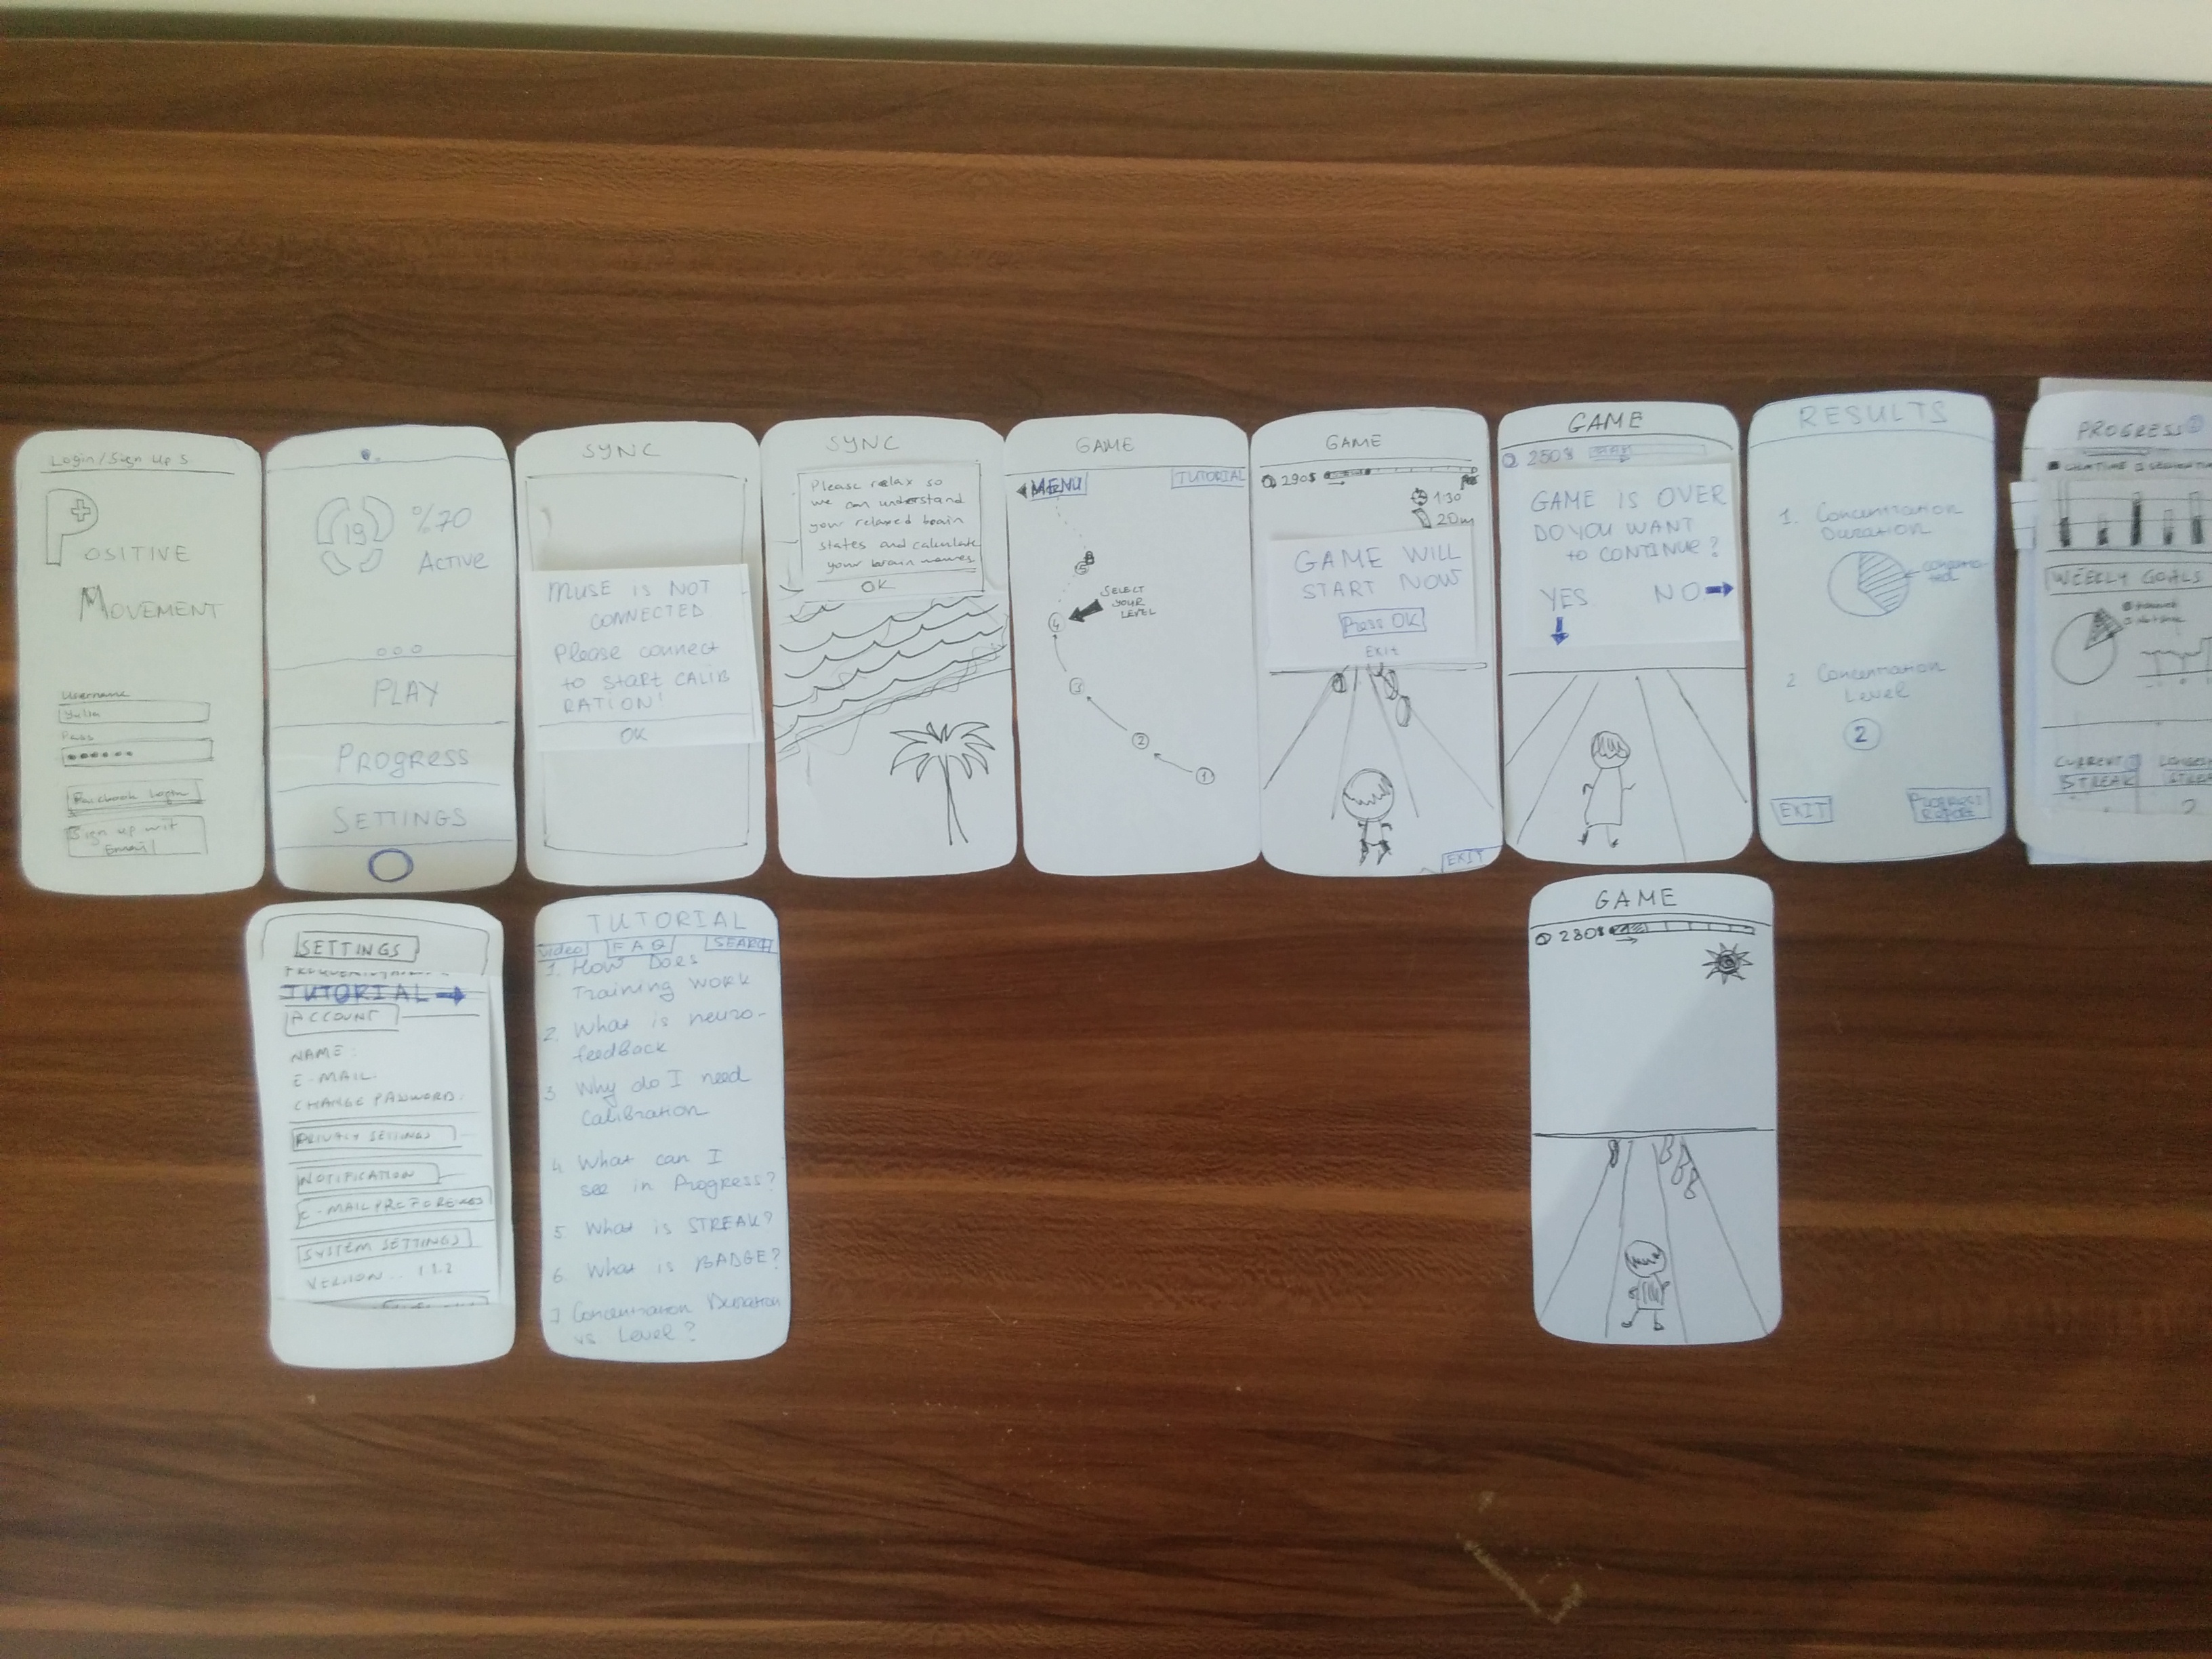 Login/Sign Up
POSITIVE
MOVEMENT
Username
Yulia
Pass
Facebook Login
Sign up wit
Email
19
%70
ACTIVE
PLAY
PROGRESS
SETTINGS
SYNC
MUSE IS NOT
CONNECTED
Please connect
to START CALIB
RATION!
OK
SYNC
Please relax so
we can understand
your relaxed brain
states and calculate
your brain waves
OK
GAME
MENU
TUTORIAL
5
SELECT
YOUR
LEVEL
4
3
2
1
GAME
290$
1:30
20m
GAME WILL
START NOW
Press OK
EXIT
EXIT
GAME
250$
GAME IS OVER
DO YOU WANT
to CONTINUE?
YES
NO
RESULTS
1. Concentration
Duration
2 Concentration
Level
2
EXIT
PROGRESS
REPORT
PROGRESS
WEEKLY GOALS
CURRENT
STREAK
SETTINGS
TUTORIAL
ACCOUNT
NAME:
E-MAIL:
CHANGE PASSWORD:
PRIVACY SETTINGS
NOTIFICATION
SYSTEM SETTINGS
VERSION .. 1.1.2
TUTORIAL
Video
FAQ
SEARCH
1. How Does
Training WORK
2. What is neuro-
feedback
3 Why do I need
Calibration
4 What can I
see in Progress?
5 What is STREAK?
6. What is BADGE?
7 Concentration Duration
vs Level?
GAME
280$